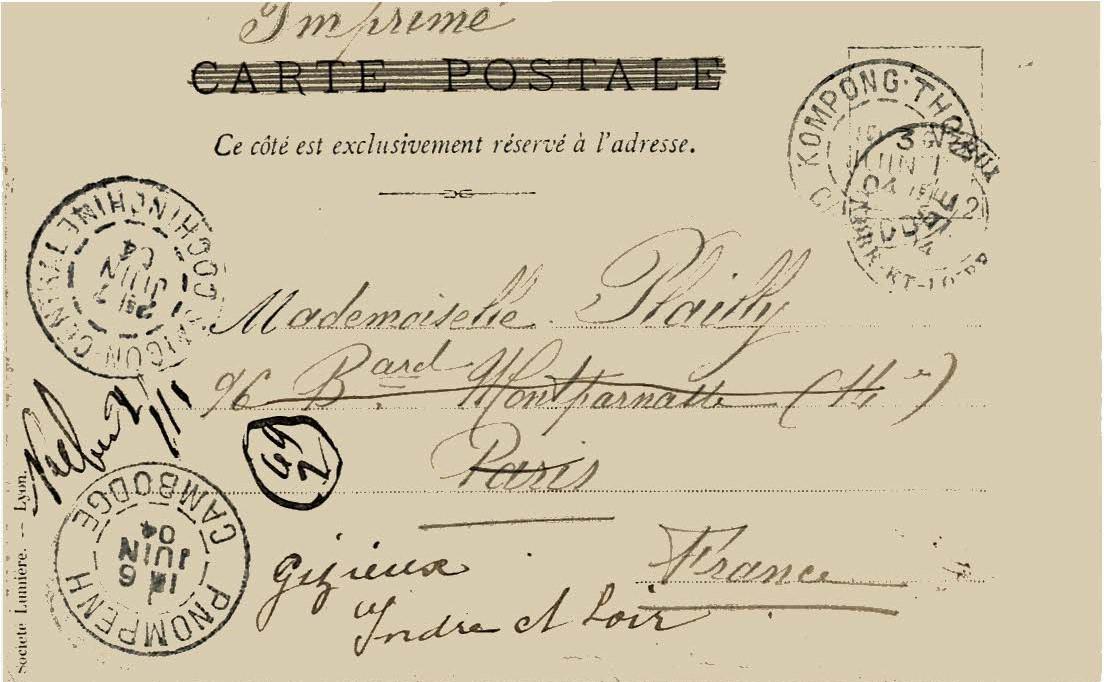 Imprimé
CARTE POSTALE
Ce côté est exclusivement réservé à l'adresse.
KOMPONG-THOM
3
JUIN
04
SAIGON CENTRAL COCHINCHINE
JUIN
04
Mademoiselle Plailly
96 Bard Montparnasse (14e)
Paris
France
Gizieux
Indre et Loir
PNOMPENH CAMBODGE
6
JUIN
04
Société Lumière. -- Lyon.